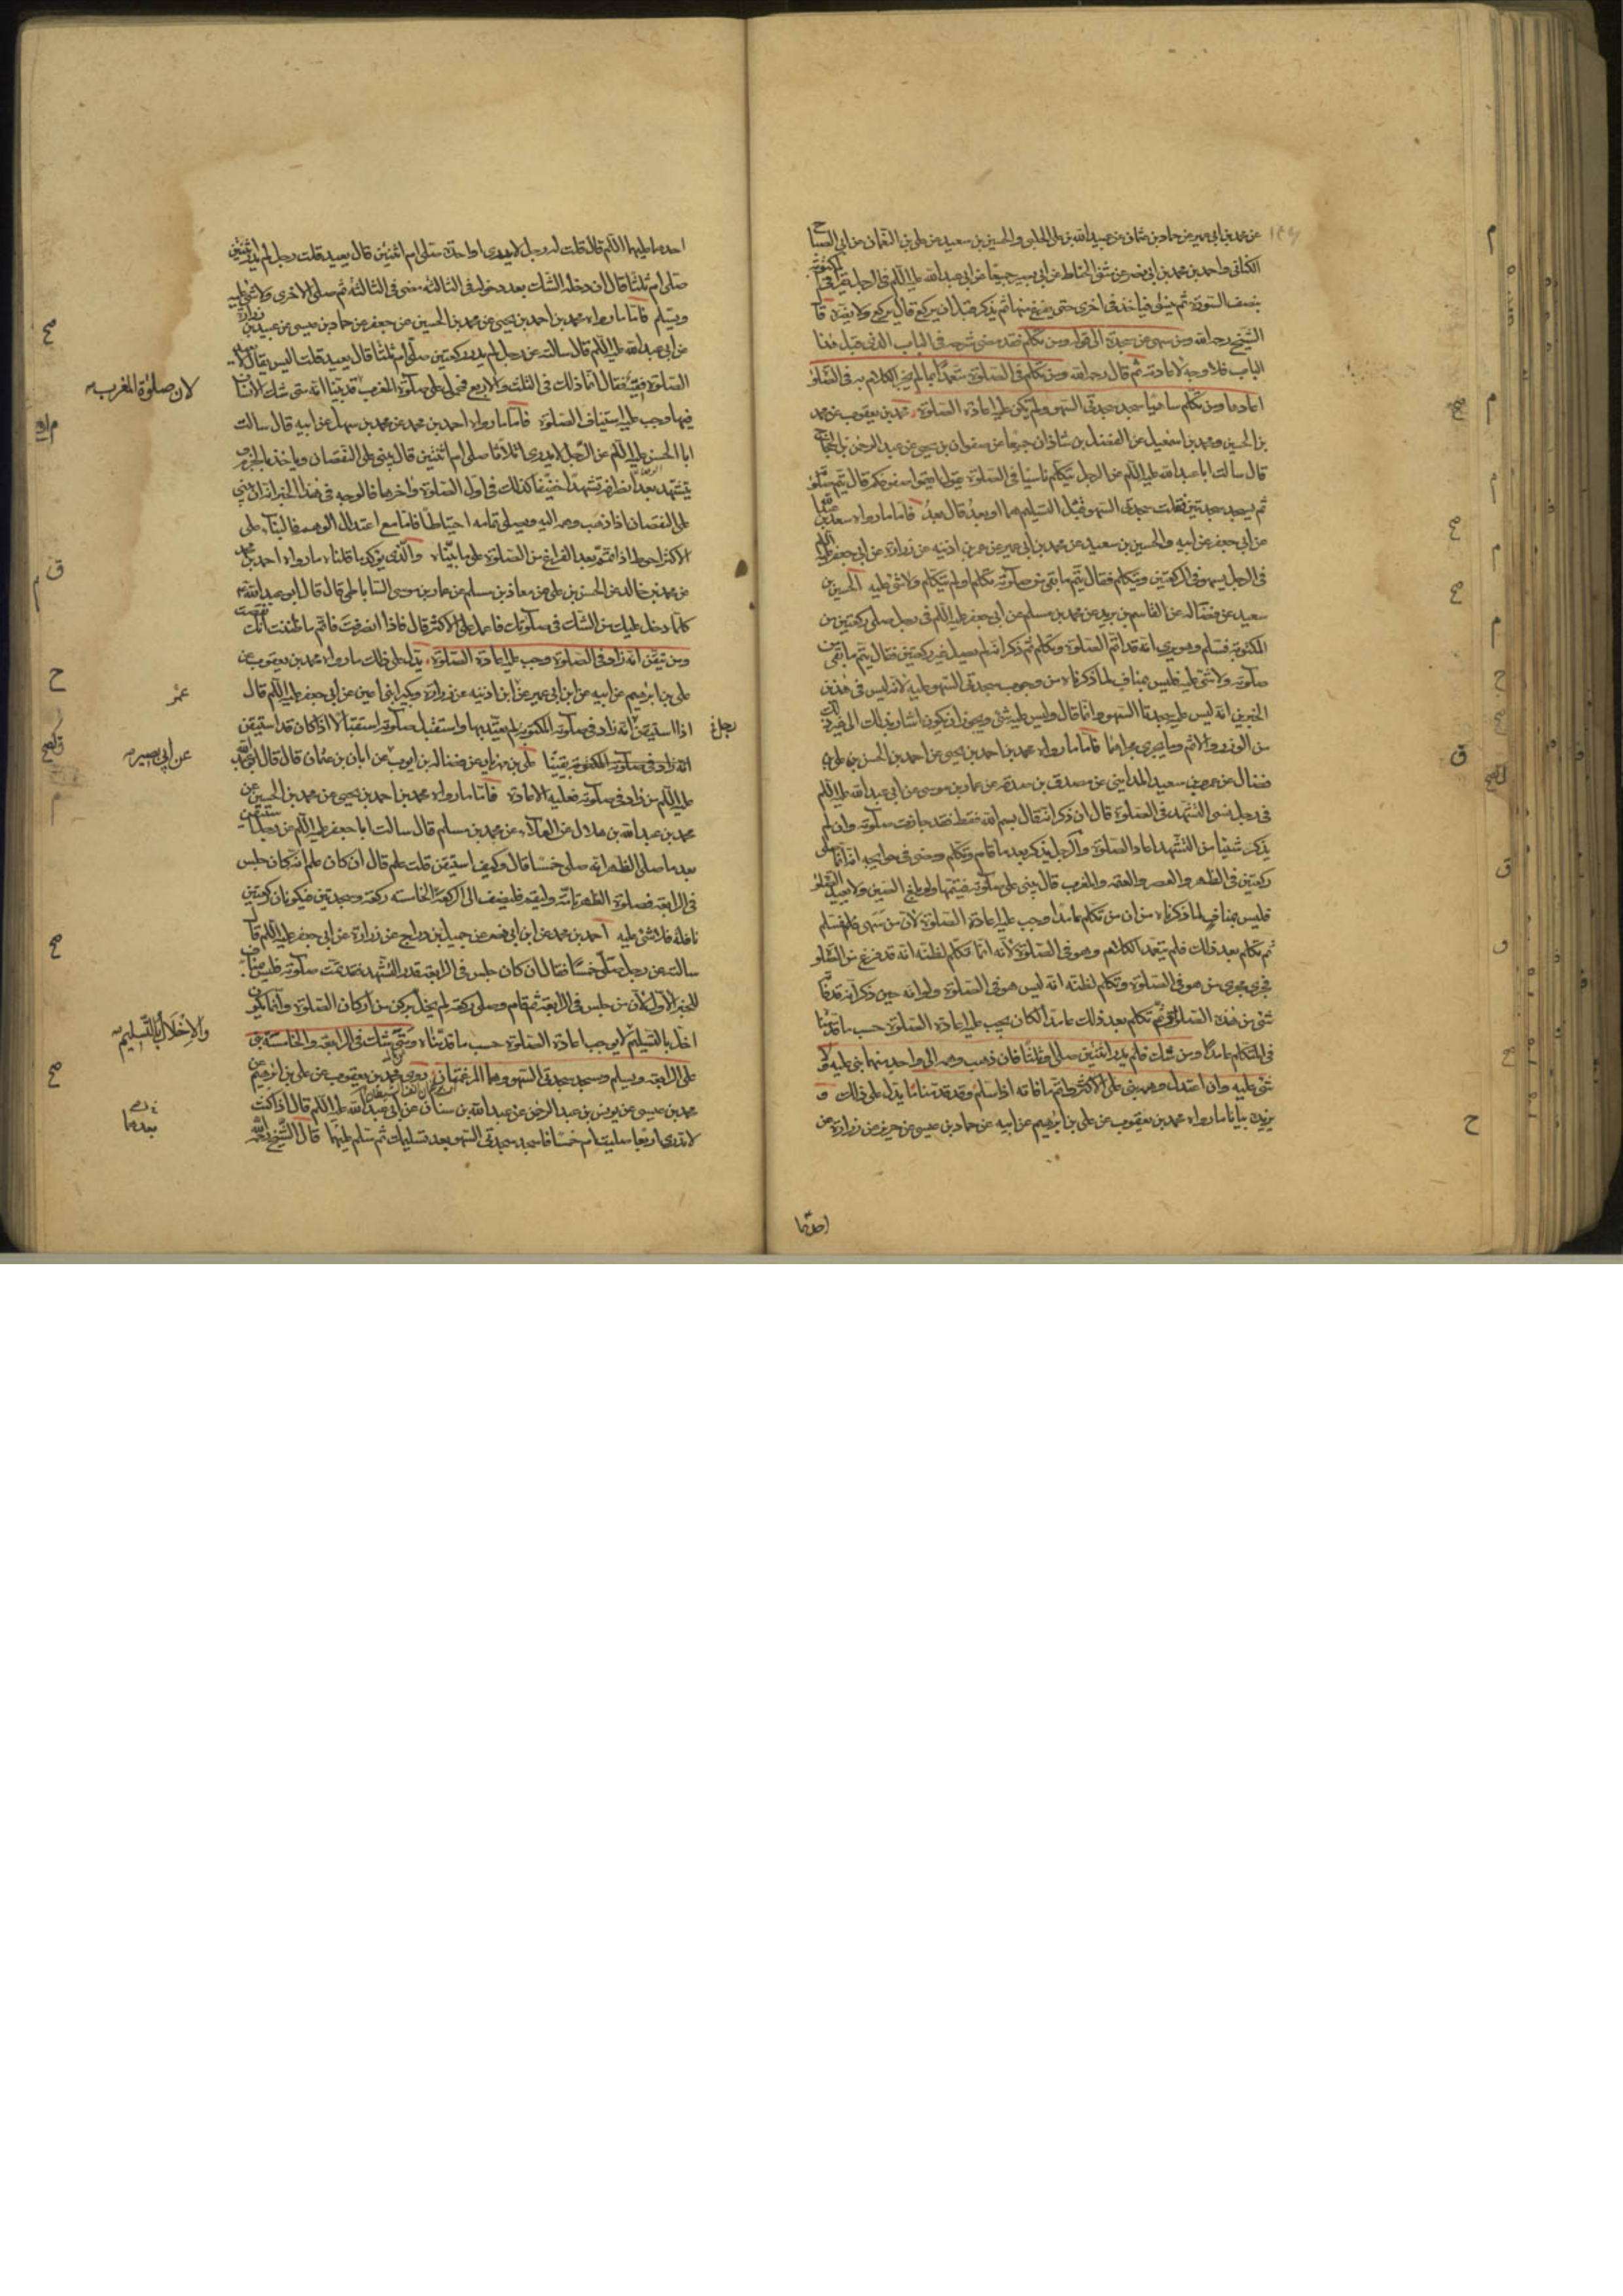 عن محمد بن ابي عمير عن حماد بن عثمان عن عبيد الله بن علي الحلبي والحسين بن سعيد عن علي بن النعمان عن ابي الصباح
الكناني واحمد بن محمد بن ابي نصر عن مثنى الحناط عن ابي بصير جميعا عن ابي عبد الله عليه السلم في الرجل يقرأ في المكتوبة
بنصف السورة ثم ينسى فياخذ في اخرى حتى يفرغ منها ثم يذكر قبل ان يركع قال يركع ولا يضره قال
الشيخ رحمه الله ومن سهى عن سجدة الى قوله ومن تكلم فقد مضى شرحه في الباب الذي قبل هذا
الباب فلا وجه لاعادته ثم قال رحمه الله ومن تكلم في الصلوة متعمدا بما لا يجوز الكلام به في الصلوة
اعادها ومن تكلم ساهيا سجد سجدتي السهو ولم يكن عليه اعادة الصلوة محمد بن يعقوب عن محمد
بن الحسين ومحمد بن اسمعيل عن الفضل بن شاذان جميعا عن صفوان بن يحيى عن عبد الرحمن بن الحجاج
قال سالت ابا عبد الله عليه السلم عن الرجل يتكلم ناسيا في الصلوة يقول اقيموا صفوفكم قال يتم صلوته
ثم يسجد سجدتين فقلت سجدتي السهو قبل التسليم هما او بعد قال بعد فاما ما رواه سعد بن عبد الله
عن ابي جعفر عن ابيه والحسين بن سعيد عن محمد بن ابي عمير عن عمر بن اذينه عن زرارة عن ابي جعفر عليه السلم
في الرجل يسهو في الركعتين ويتكلم فقال يتم ما بقي من صلوته تكلم او لم يتكلم ولا شئ عليه الحسين بن
سعيد عن فضاله عن القاسم بن بريد عن محمد بن مسلم عن ابي جعفر عليه السلم في رجل صلى ركعتين من
المكتوبة فسلم وهو يرى انه قد اتم الصلوة وتكلم ثم ذكر انه لم يصل غير ركعتين فقال يتم ما بقي من
صلوته ولا شئ عليه فليس بمناف لما ذكرناه من وجوب سجدتي السهو عليه لانه ليس في هذين
الخبرين انه ليس عليه سجدتا السهو وانما قال وليس عليه شئ ويجوز ان يكون اشار بذلك الى غير ذلك
من الوزر والاثم وما يجري مجراهما فاما ما رواه محمد بن احمد بن يحيى عن احمد بن الحسن بن علي بن
فضال عن عمرو بن سعيد المدايني عن مصدق بن صدقه عن عمار بن موسى عن ابي عبد الله عليه السلم
في رجل نسي التشهد في الصلوة قال ان ذكر انه قال بسم الله فقط فقد جازت صلوته وان لم
يذكر شيئا من التشهد اعاد الصلوة والرجل يذكر بعد ما قام وتكلم ومضى في حوايجه انه انما صلى
ركعتين في الظهر والعصر والعتمه والمغرب قال يبني على صلوته فيتمها ولو بلغ الصين ولا يعيد الصلوة
فليس بمناف لما ذكرناه من ان من تكلم عامدا وجب عليه اعادة الصلوة لان من سهى فسلم
ثم تكلم بعد ذلك فلم يتعمد الكلام وهو في الصلوة لانه انما تكلم لظنه انه قد فرغ من الصلوة
فجرى مجرى من هو في الصلوة وتكلم لظنه انه ليس هو في الصلوة ولو انه حين ذكر انه قد فاته
شئ من هذه الصلوة ثم تكلم بعد ذلك عامدا لكان يجب عليه اعادة الصلوة حسب ما قدمناه
في المتكلم عامدا ومن شك فلم يدر اثنتين صلى او ثلثا فان ذهب وهمه الى واحد منهما بنى عليه ولا
شئ عليه وان اعتدل وهمه بنى على الاكثر ثم اتم ما فاته اذا سلم وقد قدمنا ما يدل على ذلك و
يزيده بيانا ما رواه محمد بن يعقوب عن علي بن ابرهيم عن ابيه عن حماد بن عيسى عن حريز عن زرارة عن
احدهما
احدهما عليهما السلم قال قلت له رجل لا يدري اواحدة صلى ام اثنتين قال يعيد قلت رجل لم يدر اثنتين
صلى ام ثلثا قال ان دخله الشك بعد دخوله في الثالثه مضى في الثالثه ثم صلى الاخرى ولا شئ عليه
ويسلم فاما ما رواه محمد بن احمد بن يحيى عن محمد بن الحسين عن جعفر عن حماد بن عيسى عن عبيد بن زرارة
عن ابي عبد الله عليه السلم قال سالته عن رجل لم يدر ركعتين صلى ام ثلثا قال يعيد قلت اليس يقال لا يعيد
الصلوة فقيه فقال انما ذلك في الثلث والاربع فمحمول على صلوة المغرب قد بينا انه متى شك الانسان
لان صلوة المغرب
فيها وجب عليه استيناف الصلوة فاما ما رواه احمد بن محمد عن محمد بن سهل عن ابيه قال سالت
ابا الحسن عليه السلم عن الرجل لا يدري اثلاثا صلى ام اثنتين قال يبني على النقصان وياخذ بالجزم
ويتشهد بعد انصرافه تشهدا خفيفا كذلك في اول الصلوة واخرها فالوجه في هذا الخبر انه ان يبني
على النقصان اذا ذهب وهمه اليه ويصلي تمامه احتياطا فاما مع اعتدال الوهم فالبناء على
الاكثر احوط اذا تمم بعد الفراغ من الصلوة على ما بيناه والذي يؤكد ما قلناه ما رواه احمد بن محمد
عن محمد بن خالد عن الحسن بن علي عن معاذ بن مسلم عن عمار بن موسى الساباطي قال قال ابو عبد الله ع
كلما دخل عليك من الشك في صلوتك فاعمل على الاكثر قال فاذا انصرفت فاتم ما ظننت انك نقصت
ومن تيقن انه زاد في الصلوة وجب عليه اعادة الصلوة يدل على ذلك ما رواه محمد بن يعقوب عن
علي بن ابرهيم عن ابيه عن ابن ابي عمير عن ابن اذينه عن زرارة وبكير ابني اعين عن ابي جعفر عليه السلم قال
اذا استيقن انه زاد في صلوته المكتوبة لم يعتد بها واستقبل صلوته استقبالا اذا كان قد استيقن
انه زاد في صلوته المكتوبة يقينا علي بن مهزيار عن فضاله بن ايوب عن ابان بن عثمان قال قال ابو عبد الله
عن ابي بصير
عليه السلم من زاد في صلوته فعليه الاعادة فاما ما رواه محمد بن احمد بن يحيى عن محمد بن الحسين عن
محمد بن عبد الله بن هلال عن العلاء عن محمد بن مسلم قال سالت ابا جعفر عليه السلم عن رجل استيقن
بعد ما صلى الظهر انه صلى خمسا قال وكيف استيقن قلت علم قال ان كان علم انه كان جلس
في الرابعة فصلوة الظهر تامة وليقم فليضف الى الركعة الخامسه ركعة وسجدتين فيكونان ركعتين
نافلة فلا شئ عليه احمد بن محمد عن ابن ابي نصر عن جميل بن دراج عن زرارة عن ابي جعفر عليه السلم قال
سالته عن رجل صلى خمسا فقال ان كان جلس في الرابعة قدر التشهد فقد تمت صلوته فليس مناف
للخبر الاول لان من جلس في الرابعة ثم قام وصلى ركعة لم يخل بركن من اركان الصلوة وانما يكون
اخل بالتسليم لا يوجب اعادة الصلوة حسب ما قدمناه ومتى شك في الرابعة والخامسة بنى
والاخلال بالتسليم
على الرابعة ويسلم وسجد سجدتي السهو وهما المرغمتان روى محمد بن يعقوب عن علي بن ابرهيم عن
محمد بن عيسى عن يونس بن عبد الرحمن عن عبد الله بن سنان عن ابي عبد الله عليه السلم قال اذا كنت
لا تدري اربعا صليت ام خمسا فاسجد سجدتي السهو بعد تسليمك ثم سلم بعدهما قال الشيخ رحمه الله
بعدهما